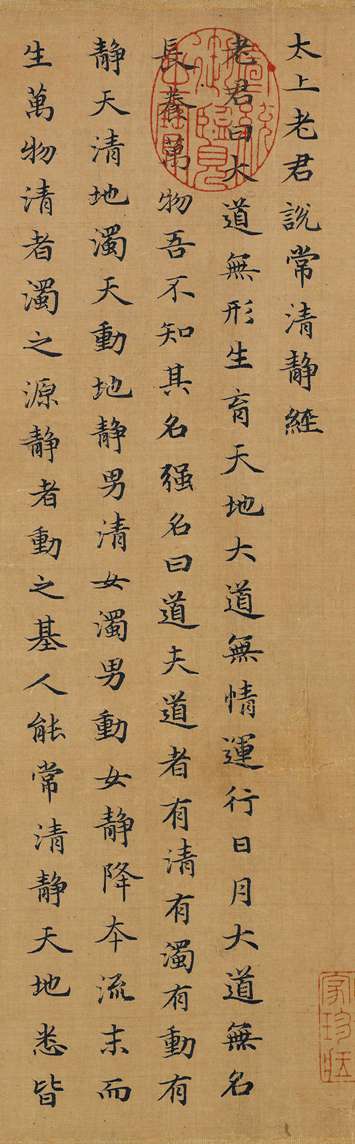 太上老君說常清静經
老君曰大道無形生育天地大道無情運行日月大道無名
長養萬物吾不知其名强名曰道夫道者有清有濁有動有
静天清地濁天動地静男清女濁男動女静降夲流末而
生萬物清者濁之源静者動之基人能常清静天地悉皆